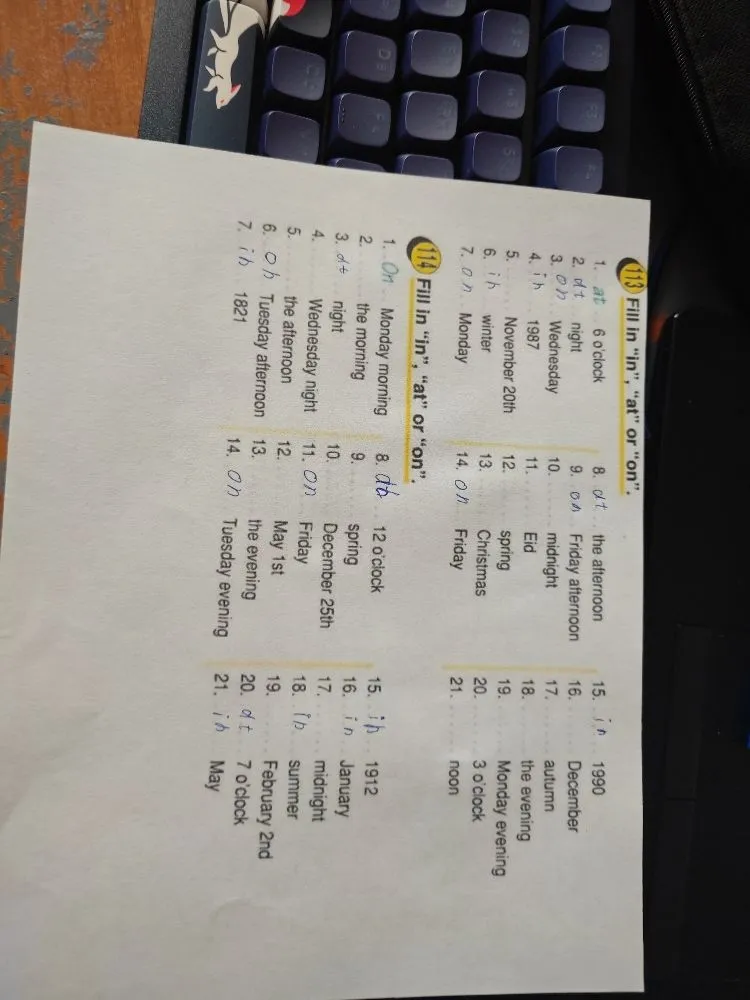 113 Fill in "in", "at" or "on".
1. at 6 o'clock
2. at night
3. on Wednesday
4. in 1987
5. November 20th
6. in winter
7. on Monday
8. at the afternoon
9. on Friday afternoon
10. midnight
11. Eid
12. spring
13. Christmas
14. on Friday
15. in 1990
16. December
17. autumn
18. the evening
19. Monday evening
20. 3 o'clock
21. noon
114 Fill in "in", "at" or "on".
1. On Monday morning
2. the morning
3. at night
4. Wednesday night
5. the afternoon
6. on Tuesday afternoon
7. in 1821
8. 12 o'clock
9. spring
10. December 25th
11. on Friday
12. May 1st
13. the evening
14. on Tuesday evening
15. in 1912
16. in January
17. midnight
18. in summer
19. February 2nd
20. at 7 o'clock
21. in May